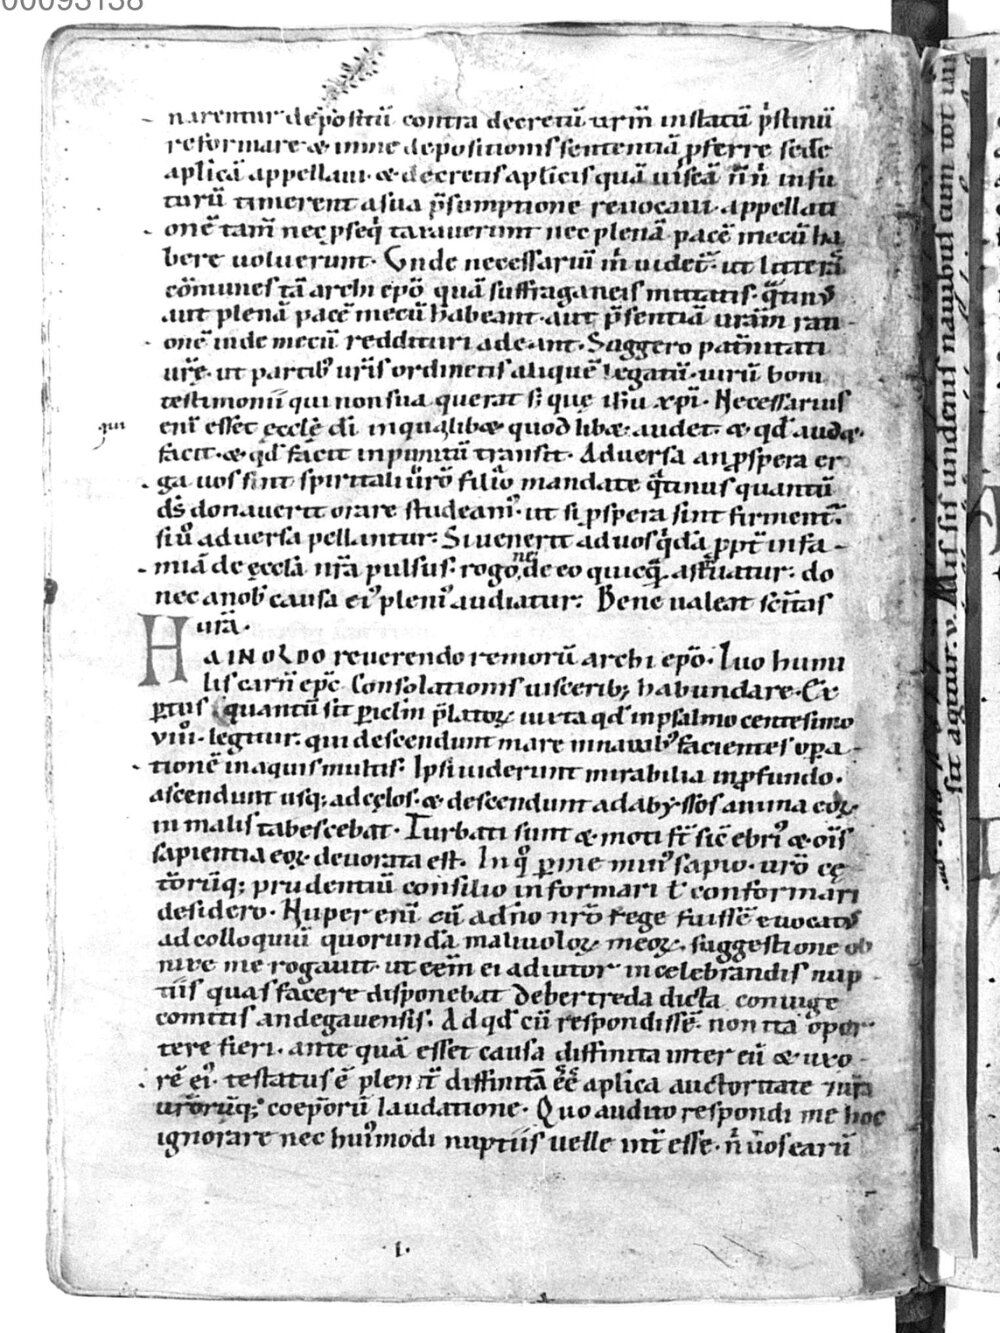 00093138
narentur depositū contra decretū urm̄ in statū p̄stinū
reformare & in me depositionis sententiā p̄ferre sedē
aplicā appellaui · & decretis aplicis quā uisēā n̄ n̄ in fu
turū timerent a sua p̄sumptione reuocaui · appellati
onē tam̄ nec p̱seq̄ tarauerunt nec plenā pacē mecū ha
bere uoluerunt · Unde necessariū m̄ uidet̄ · ut litterā
cōmunes tā archiep̄o quā suffraganeis mittatis · q̄tinꝰ
aut plenā pacē mecū habeant · aut p̄sentiā urām rati
onē inde mecū reddituri adeant · Suggero pat̄nitati
ur̄ę · ut partibꝰ ur̄is ordinetis aliquē legatū · uirū boni
testimonii qui non sua querat s; quę ih̄u xp̄i · Necessarius
eni̅ esset ęcclę̄ dī in qua qilib& quod lib& audet · & qd̄ aud&
qui
facit · & qd̄ facit inpunitū transit · Aduersa an ꝓspera er
ga uos sint spiritali ur̄o filio mandate q̄tinus quantū
ds̄ donauerit orare studeamꝰ · ut si ꝓspera sint firment̄ ·
siū aduersa pellantur · Si uenerit ad uos q̄dā ꝓpt̄ infa
miā de ęcclā nr̄a pulsus · rogo ne de eo quicq̄ astruatur · do
nec a nob̄ causa eiꝰ pleniꝰ audiatur · Bene ualeat sc̄itas
urā ·
HAINOLDO reuerendo remorū archiep̄o · Iuo humi
lis carn̄ ep̄c Consolationis uisceribꝫ habundare · Ex
ꝑtus quantū sit ꝑiclm̄ p̄latoꝝ iuxta qd̄ in psalmo centesimo
viuͦ · legitur · qui descendunt mare in nauibꝰ facientes oꝑa
tionē in aquis multis · Ipsi uiderunt mirabilia in ꝓfundo ·
ascendunt usqꝫ ad cęlos · & descendunt ad abyssos anima eoꝝ
in malis tabescebat · Turbati sunt & moti st̄ sic̄ ebriꝰ & ois̄
sapientia eoꝝ deuorata est · In qͦ ꝑ me minꝰ sapio · ur̄o cę
torūqꝫ prudentiū consilio informari ł conformari
desidero · Nuper eni̅ cū ad dn̄o nr̄o rege fuissē euocatꝰ
ad colloquiū quorundā maliuoloꝝ meoꝝ · suggestione ob
nixe me rogauit · ut eēm ei adiutor in celebrandis nup
tiis quas facere disponebat de bertreda dicta coniuge
comitis andegauensis · Ad qd̄ cū respondissē · non ita opor
tere fieri · ante quā esset causa diffinita inter eū & uxo
rē eiꝰ · testatus ē plenit̄ diffinitā eē̄ aplica auctoritate ura
ur̄orūqꝫ coep̄orū laudatione · Quo audito respondi me hoc
ignorare nec huiꝰmodi nuptiis uelle int̄esse · n̄ uos earū
I.
sit aquur. v. Mis sis undenis nauibus cum tot ui